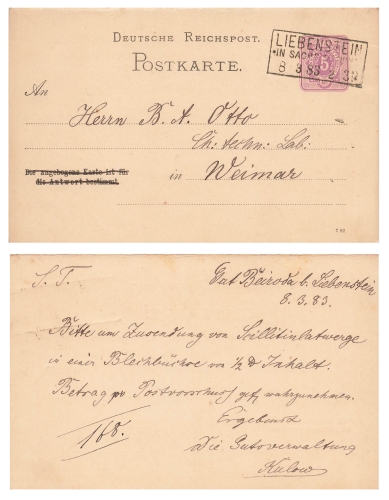 DEUTSCHE REICHSPOST.
POSTKARTE.
LIEBENSTEIN
8 3 83
5
An
Herrn B. A. Otto
Ch: techn: Lab:
in Weimar
Der angebogene Karte ist für
die Antwort bestimmt.
S. T.
Gut Beiroda b. Liebenstein
8. 3. 83.
Bitte um Zusendung von Scillitinlatwerge
in einer Blechbüchse von ½ ℔ Inhalt.
Betrag pr Postvorschuß gefl wahrzunehmen.
Ergebenst
168.
Die Gutsverwaltung
Kulow